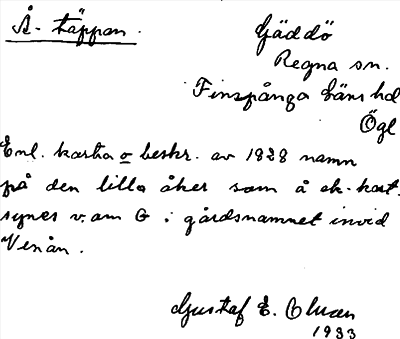 Å-täppan.
Gäddö
Regna sn.
Finspånga läns hd
Ögl
Enl. karta o beskr. av 1828 namn
på den lilla åker som å ek. kart.
synes v. om G i gårdsnamnet invid
Venån.
Gustaf E.
1933